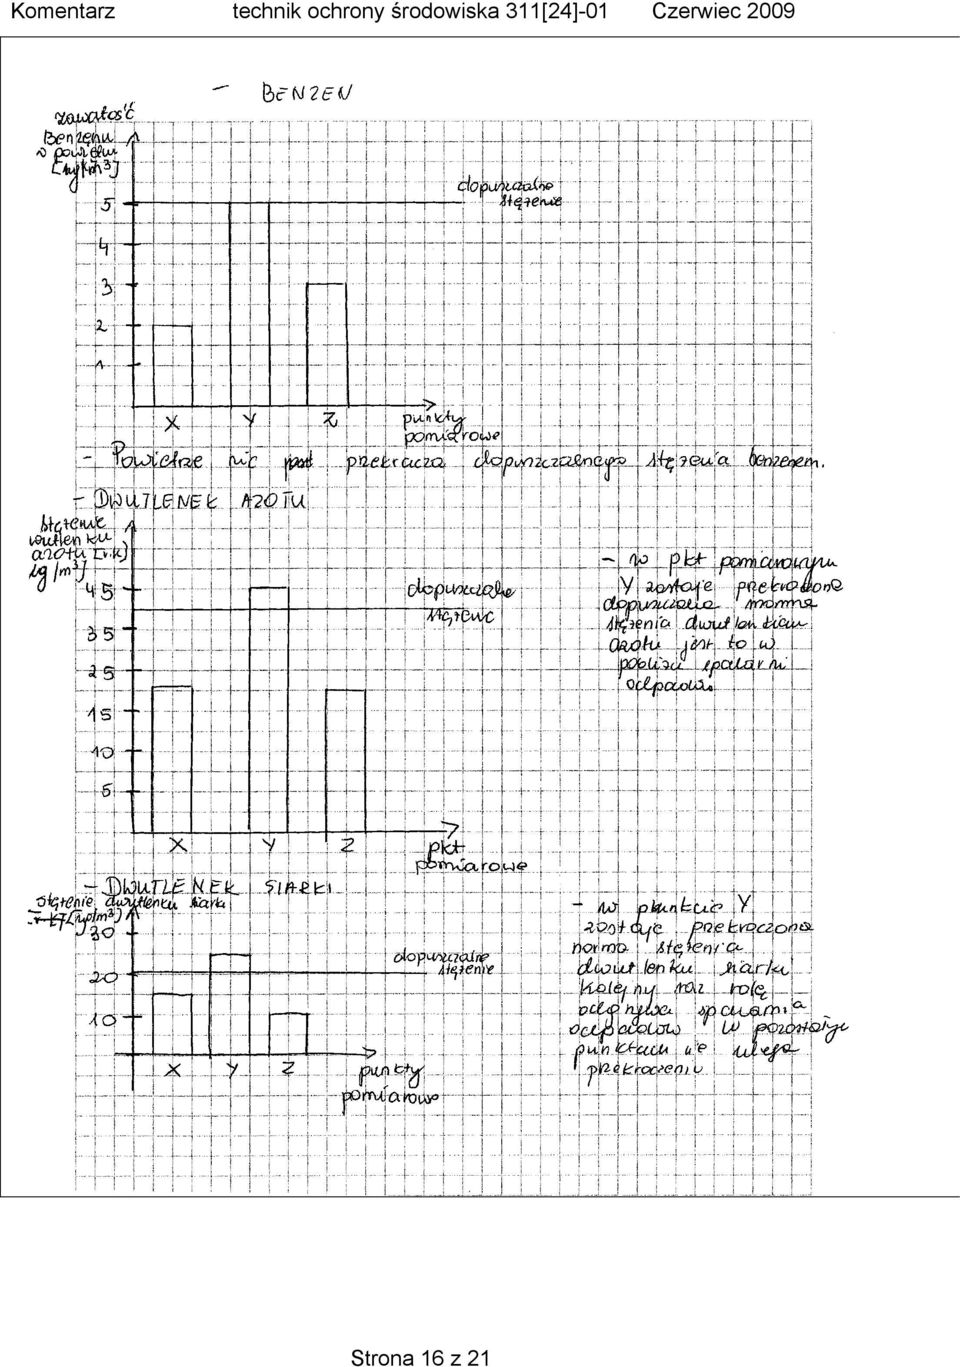 Komentarz technik ochrony środowiska 311[24]-01 Czerwiec 2009
- BENZEN
zawartość
Benzenu
w powietrzu
dopuszczalne
stężenie
5
4
3
2
1
X Y Z punkty
pomiarowe
- Powietrze nie przekracza dopuszczalnego stężenia benzenem.
- DWUTLENEK AZOTU
stężenie
azotu
- w pkt pomiarowym
Y zostaje przekroczona
dopuszczalna
stężenia dwutlenkiem
azotu jest to w
pobliżu spalarni
odpadów
dopuszczalne
stężenie
45
35
25
15
10
5
X Y Z pkt
pomiarowe
- DWUTLENEK SIARKI
stężenie dwutlenku siarki
- w punkcie Y
zostaje przekroczona
norma stężenia
dwutlenku siarki
kolejny raz rolę
odgrywa spalarnia
odpadów W
punktach nie ulega
przekroczeniu
dopuszczalne
stężenie
30
20
10
X Y Z punkty
pomiarowe
Strona 16 z 21